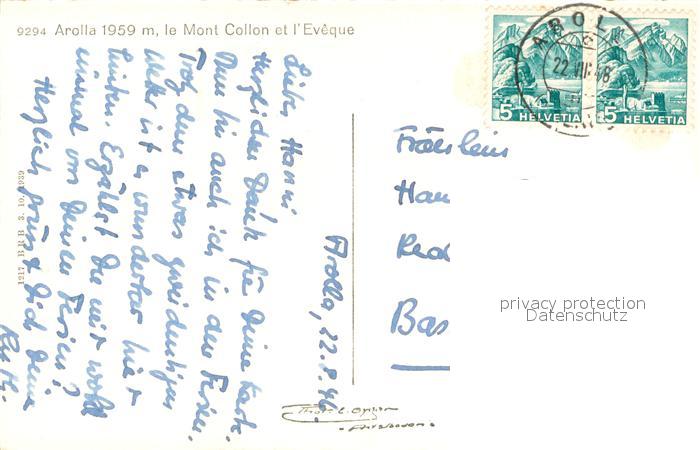 9294 Arolla 1959 m, le Mont Collon et l'Evêque
Arolla, 22.8.46.
Liebes Hanni
Herzlichen Dank für Deine Karte.
Nun bin auch ich in den Ferien.
Trotz dem etwas zweideutigen
Wetter ist es wunderbar hier
hinten. Erzählst Du mir wohl
einmal von Deinen Ferien?
Herzlich grüsst Dich Deine
Ruth.
1217 B R B 3. 10. 1939
AROL
22.VIII.46
5 HELVETIA
5 HELVETIA
Fräulein
Han
Bas
privacy protection
Datenschutz
Phot.